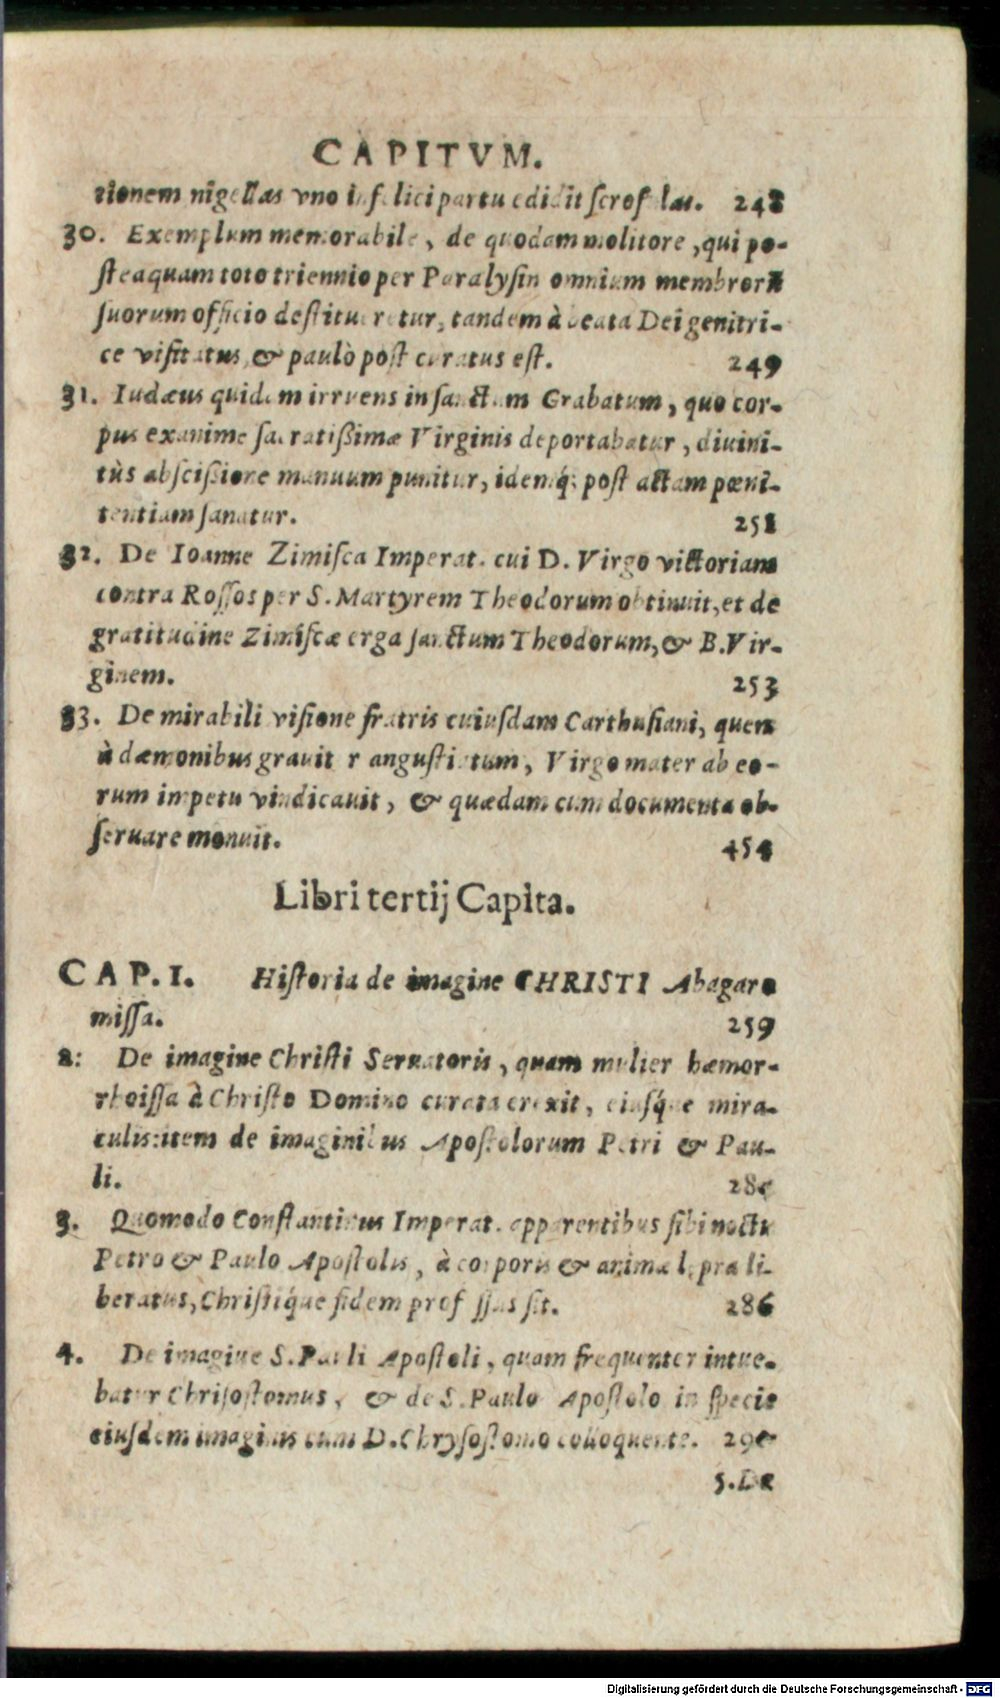 CAPITVM.
tionem nigellas vno infelici partu edidit scrofulas. 248
30. Exemplum memorabile, de quodam molitore, qui po-
steaquam toto triennio per Paralysin omnium membrorũ
suorum officio destitueretur, tandem à beata Dei genitri-
ce visitatus, & paulò post curatus est. 249
31. Iudæus quidam irruens in sanctum Grabatum, quo cor-
pus exanime sacratißimæ Virginis deportabatur, diuini-
tùs abscißione manuum punitur, idemq́; post actam pœni-
tentiam sanatur. 251
32. De Ioanne Zimisca Imperat. cui D. Virgo victoriam
contra Rossos per S. Martyrem Theodorum obtinuit, et de
gratitudine Zimiscæ erga sanctum Theodorum, & B. Vir-
ginem. 253
33. De mirabili visione fratris cuiusdam Carthusiani, quem
à dæmonibus grauiter angustiatum, Virgo mater ab eo-
rum impetu vindicauit, & quædam eum documenta ob-
seruare monuit. 454
Libri tertij Capita.
CAP. I. Historia de imagine CHRISTI Abagaro
missa. 259
2: De imagine Christi Seruatoris, quam mulier hæmor-
rhoissa à Christo Domino curata erexit, eiusq́ue mira-
culis: item de imaginibus Apostolorum Petri & Pau-
li.
3. Quomodo Constantinus Imperat. apparentibus sibi noctu
Petro & Paulo Apostolis, à corporis & animæ lepra li-
beratus, Christiq́ue fidem professus sit. 286
4. De imagine S. Pauli Apostoli, quam frequenter intue-
batur Chrisostomus, & de S. Paulo Apostolo in specie
eiusdem imaginis cum D. Chrysostomo colloquente. 290
5. De
Digitalisierung gefördert durch die Deutsche Forschungsgemeinschaft - DFG